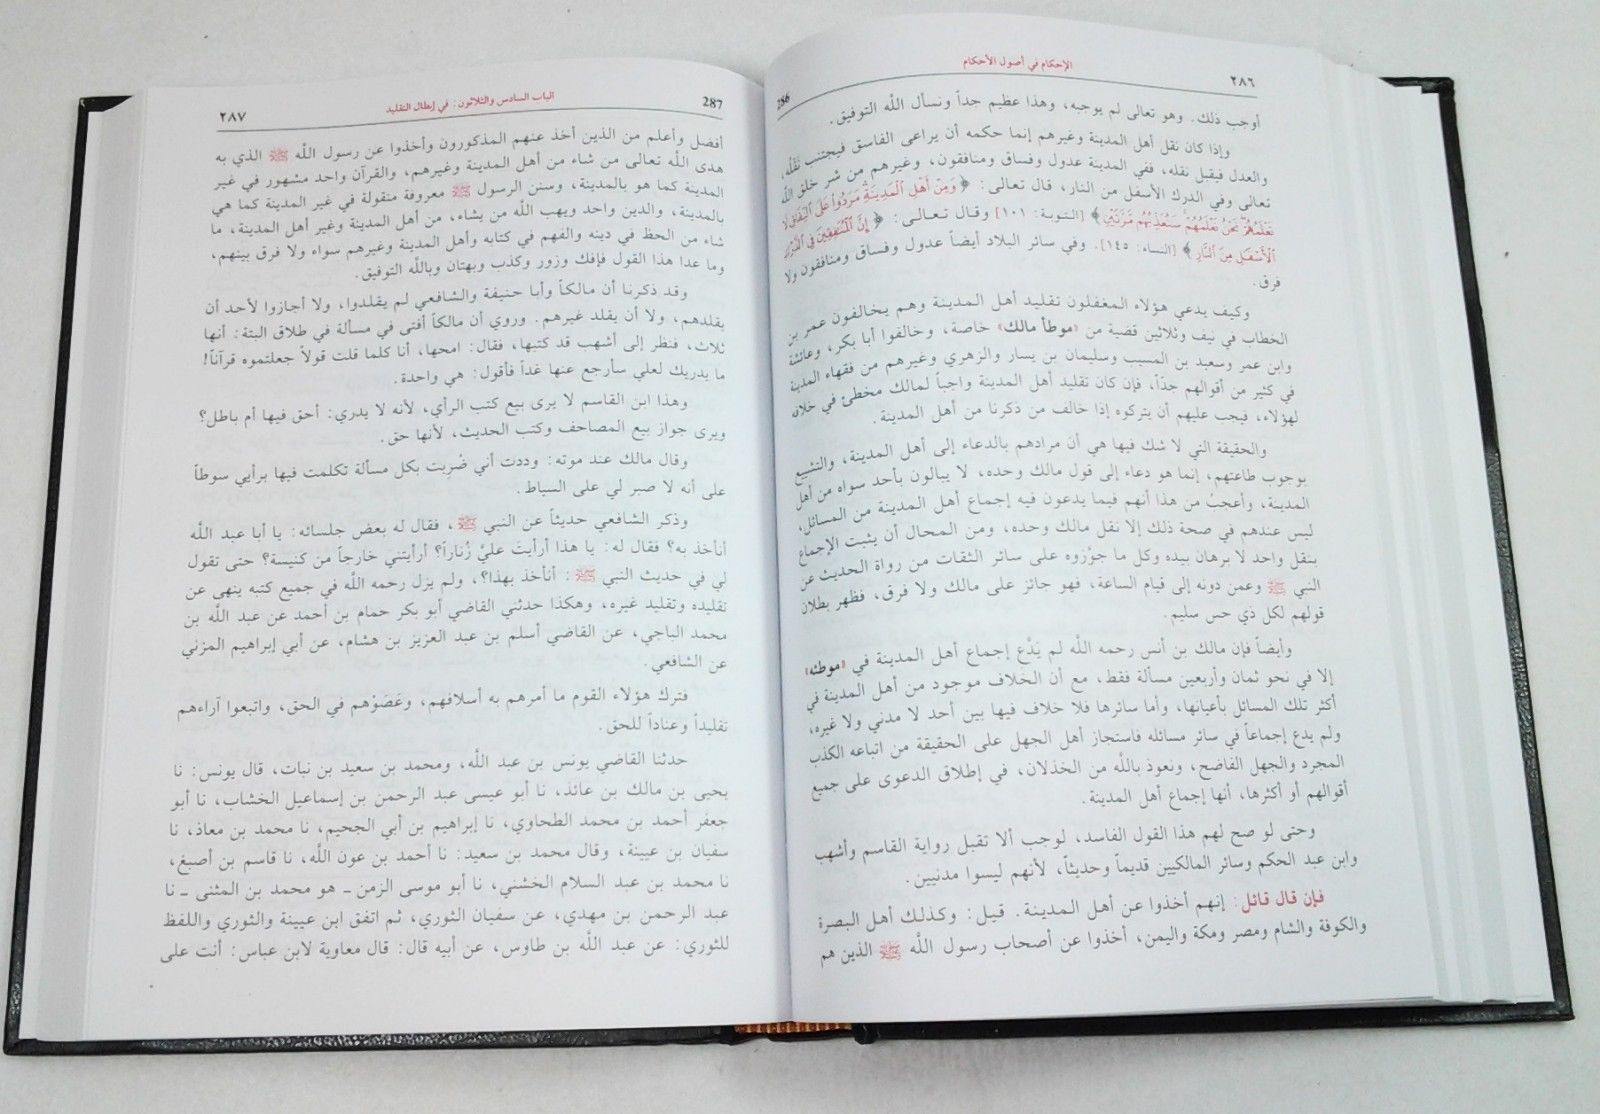 ٢٨٦
الإحكام في أصول الأحكام
286
أوجب ذلك. وهو تعالى لم يوجبه، وهذا عظيم جداً ونسأل اللَّه التوفيق.
وإذا كان نقل أهل المدينة وغيرهم إنما حكمه أن يراعى الفاسق فيجتنب نَقْلُه،
والعدل فيقبل نقله، ففي المدينة عدول وفساق ومنافقون، وغيرهم من شر خلق اللَّه
تعالى وفي الدرك الأسفل من النار، قال تعالى: ﴿وَمِنْ أَهْلِ الْمَدِينَةِ مَرَدُوا عَلَى النِّفَاقِ لَا
تَعْلَمُهُمْ نَحْنُ نَعْلَمُهُمْ سَنُعَذِّبُهُم مَّرَّتَيْنِ﴾ [التوبة: ١٠١] وقال تعالى: ﴿إِنَّ الْمُنَافِقِينَ فِي الدَّرْكِ
الْأَسْفَلِ مِنَ النَّارِ﴾ [النساء: ١٤٥]. وفي سائر البلاد أيضاً عدول وفساق ومنافقون ولا
فرق.
وكيف يدعي هؤلاء المغفلون تقليد أهل المدينة وهم يخالفون عمر بن
الخطاب في نيف وثلاثين قضية من «موطأ مالك» خاصة، وخالفوا أبا بكر، وعائشة
وابن عمر وسعيد بن المسيب وسليمان بن يسار والزهري وغيرهم من فقهاء المدينة
في كثير من أقوالهم جدّاً، فإن كان تقليد أهل المدينة واجباً لمالك مخطئ في خلافه
لهؤلاء، فيجب عليهم أن يتركوه إذا خالف من ذكرنا من أهل المدينة.
والحقيقة التي لا شك فيها هي أن مرادهم بالدعاء إلى أهل المدينة، والتشييع
بوجوب طاعتهم، إنما هو دعاء إلى قول مالك وحده، لا يبالون بأحد سواه من أهل
المدينة، وأعجبُ من هذا أنهم فيما يدعون فيه إجماع أهل المدينة من المسائل،
ليس عندهم في صحة ذلك إلا نقل مالك وحده، ومن المحال أن يثبت الإجماع
بنقل واحد لا برهان بيده وكل ما جوَّزوه على سائر الثقات من رواة الحديث عن
النبي ﷺ وعمن دونه إلى قيام الساعة، فهو جائز على مالك ولا فرق، فظهر بطلان
قولهم لكل ذي حس سليم.
وأيضاً فإن مالك بن أنس رحمه اللَّه لم يَدَّعِ إجماع أهل المدينة في «موطئه»
إلا في نحو ثمان وأربعين مسألة فقط، مع أن الخلاف موجود من أهل المدينة في
أكثر تلك المسائل بأعيانها، وأما سائرها فلا خلاف فيها بين أحد لا مدني ولا غيره،
ولم يدع إجماعاً في سائر مسائله فاستجاز أهل الجهل على الحقيقة من اتباعه الكذب
المجرد والجهل الفاضح، ونعوذ باللَّه من الخذلان، في إطلاق الدعوى على جميع
أقوالهم أو أكثرها، أنها إجماع أهل المدينة.
وحتى لو صح لهم هذا القول الفاسد، لوجب ألا تقبل رواية القاسم وأشهب
وابن عبد الحكم وسائر المالكيين قديماً وحديثاً، لأنهم ليسوا مدنيين.
فإن قال قائل: إنهم أخذوا عن أهل المدينة. قيل: وكذلك أهل البصرة
والكوفة والشام ومصر ومكة واليمن، أخذوا عن أصحاب رسول اللَّه ﷺ الذين هم
287
الباب السادس والثلاثون: في إبطال التقليد
٢٨٧
أفضل وأعلم من الذين أخذ عنهم المذكورون وأخذوا عن رسول اللَّه ﷺ الذي به
هدى اللَّه تعالى من شاء من أهل المدينة وغيرهم، والقرآن واحد مشهور في غير
المدينة كما هو بالمدينة، وسنن الرسول ﷺ معروفة منقولة في غير المدينة كما هي
بالمدينة، والدين واحد ويهب اللَّه من يشاء، من أهل المدينة وغير أهل المدينة، ما
شاء من الحظ في دينه والفهم في كتابه وأهل المدينة وغيرهم سواء ولا فرق بينهم،
وما عدا هذا القول فإفك وزور وكذب وبهتان وباللَّه التوفيق.
وقد ذكرنا أن مالكاً وأبا حنيفة والشافعي لم يقلدوا، ولا أجازوا لأحد أن
يقلدهم، ولا أن يقلد غيرهم. وروي أن مالكاً أفتى في مسألة في طلاق البتة: أنها
ثلاث، فنظر إلى أشهب قد كتبها، فقال: امحها، أنا كلما قلت قولاً جعلتموه قرآناً!
ما يدريك لعلي سأرجع عنها غداً فأقول: هي واحدة.
وهذا ابن القاسم لا يرى بيع كتب الرأي، لأنه لا يدري: أحق فيها أم باطل؟
ويرى جواز بيع المصاحف وكتب الحديث، لأنها حق.
وقال مالك عند موته: وددت أني ضُرِبت بكل مسألة تكلمت فيها برأيي سوطاً
على أنه لا صبر لي على السياط.
وذكر الشافعي حديثاً عن النبي ﷺ، فقال له بعض جلسائه: يا أبا عبد اللَّه
أتأخذ به؟ فقال له: يا هذا أرأيتَ عليَّ زُناراً؟ أرأيتني خارجاً من كنيسة؟ حتى تقول
لي في حديث النبي ﷺ: أتأخذ بهذا؟، ولم يزل رحمه اللَّه في جميع كتبه ينهى عن
تقليده وتقليد غيره، وهكذا حدثني القاضي أبو بكر حمام بن أحمد عن عبد اللَّه بن
محمد الباجي، عن القاضي أسلم بن عبد العزيز بن هشام، عن أبي إبراهيم المزني
عن الشافعي.
فترك هؤلاء القوم ما أمرهم به أسلافهم، وعَصَوْهم في الحق، واتبعوا آراءهم
تقليداً وعناداً للحق.
حدثنا القاضي يونس بن عبد اللَّه، ومحمد بن سعيد بن نبات، قال يونس: نا
يحيى بن مالك بن عائذ، نا أبو عيسى عبد الرحمن بن إسماعيل الخشاب، نا أبو
جعفر أحمد بن محمد الطحاوي، نا إبراهيم بن أبي الجحيم، نا محمد بن معاذ، نا
سفيان بن عيينة، وقال محمد بن سعيد: نا أحمد بن عون اللَّه، نا قاسم بن أصبغ،
نا محمد بن عبد السلام الخشني، نا أبو موسى الزمن ـ هو محمد بن المثنى ـ نا
عبد الرحمن بن مهدي، عن سفيان الثوري، ثم اتفق ابن عيينة والثوري واللفظ
للثوري: عن عبد اللَّه بن طاوس، عن أبيه قال: قال معاوية لابن عباس: أنت على